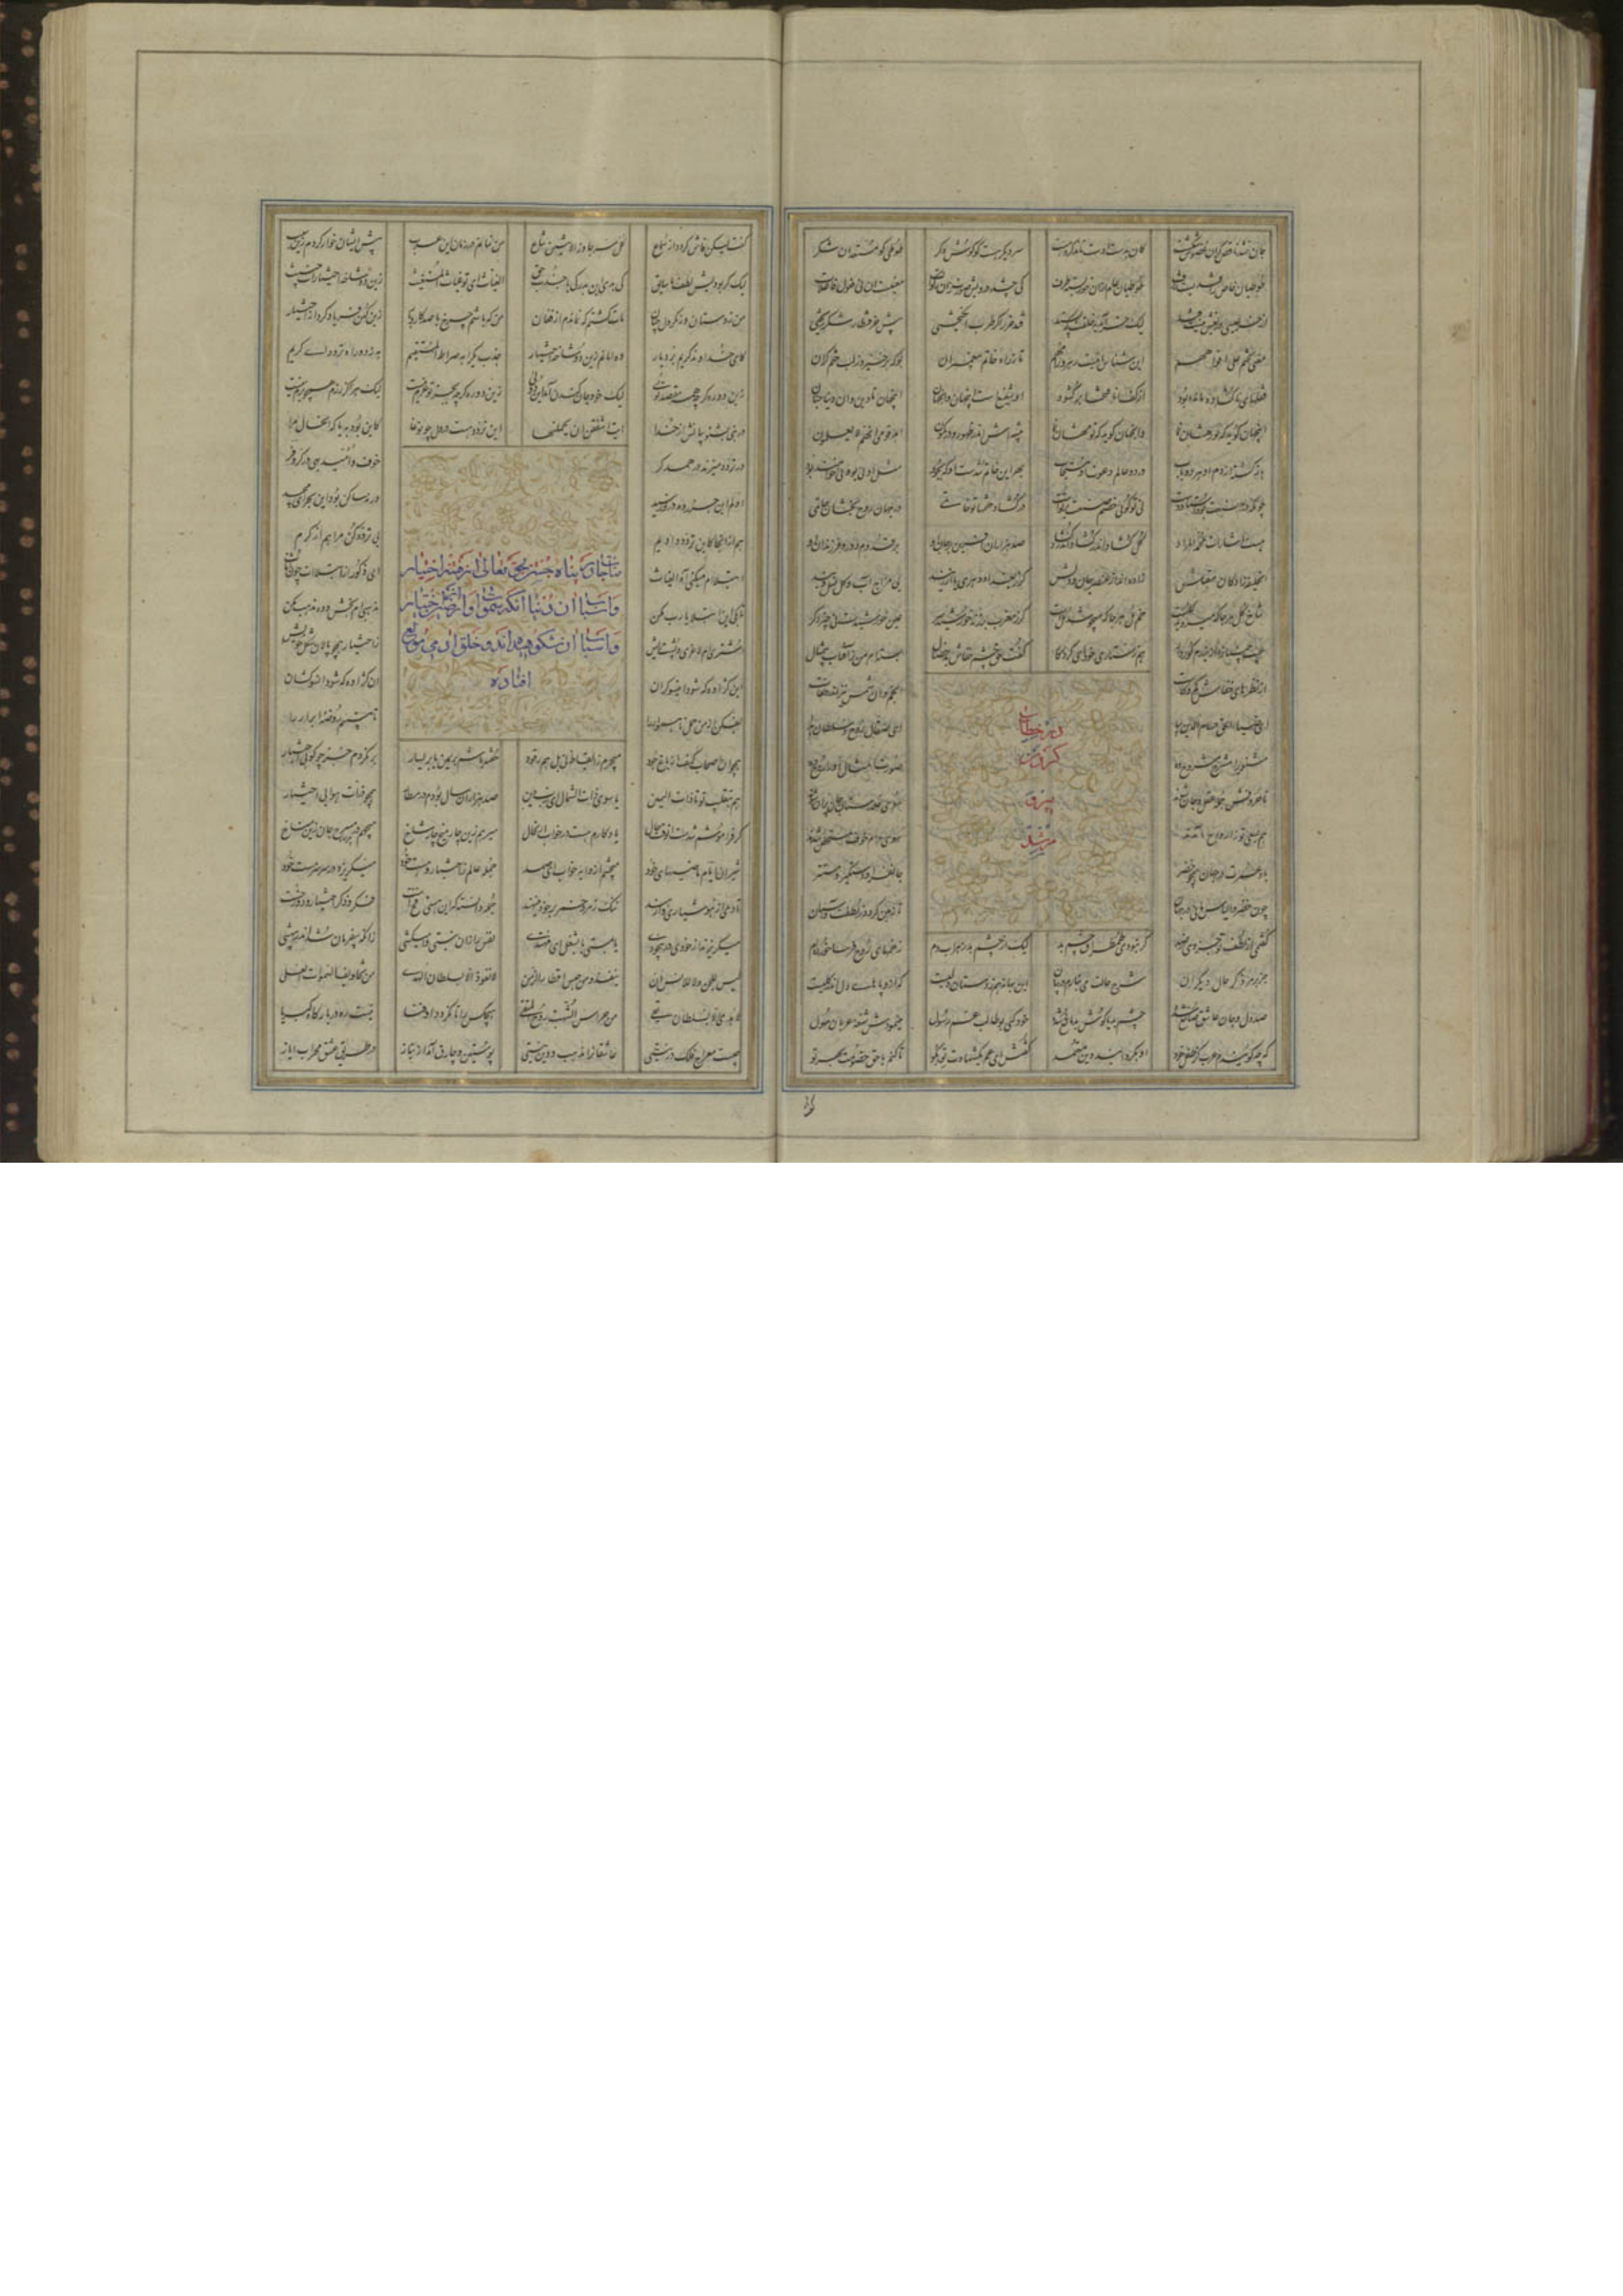 سر دیگر هست کو گوش دگر طوطی کو مستعد آن شکر
طوطیان خاص را قندیست ژرف طوطیان عام از آن خور بسته طرف کی چشد درویش صورت زان زکات معنیست آن نی فعولن فاعلات
از خر عیسی دریغش نیست قند لیک خر آمد بخلقت که پسند قند خر را گر طرب انگیختی پیش خر قنطار شکر ریختی
معنی نختم علی افواههم این شناس اینست رهرو را مهم تا ز راه خاتم پیغمبران بوکه بر خیزد ز لب ختم گران
قفلهای ناگشاده مانده بود از کف انا فتحنا برگشود او شفیع است این جهان و آن جهان این جهان تا دین و آن دنیا جنان
این جهان گوید که تو رهشان نما وان جهان گوید که تو مهشان نما پیشه اش اندر ظهور و در کمون اهد قومی انهم لا یعلمون
باز گشته از دم او هر دو باب در دو عالم دعوت او مستجاب بهر این خاتم شدست او که بجود مثل او نی بود و نی خواهند بود
چونکه در صنعت برد استاد دست نی تو گوئی ختم صنعت بر توست در گشاد ختمها تو خاتمی در جهان روح بخشان حاتمی
هست اشارات محمد المراد کل گشاد اندر گشاد اندر گشاد صد هزاران آفرین بر جان او بر قدوم و دور فرزندان او
آن خلیفه زادگان مقبلش زاده اند از عنصر جان و دلش گر ز بغداد و هری یا از ریند بی مزاج آب و گل نسل ویند
شاخ گل هر جا که میروید گلست خم مل هر جا که میجوشد ملست گر ز مغرب بر زند خورشید سر عین خورشیدست نی چیز دگر
عیب چینان را ازین دم کور دار هم بستاری خود ای کردگار گفت حق چشم خفاش بدخصال بسته ام من ز آفتاب بی مثال
از نظرهای خفاش کم و کاست انجم آن شمس نیز اندر خفاست
در خطاب
کردن
پیر و
مرشد
ای ضیاء الحق حسام الدین بیا ای صقال روح و سلطان
مثنوی را مسرح مشروح ده صورت امثال او را روح ده
تا حروفش جمله عقل و جان شوند سوی خلدستان جان پران شوند
هم بسعی تو ز ارواح آمدند سوی دام حرف و مستحقن شدند
باد عمرت در جهان همچو خضر جانفزا و دستگیر و مستمر
چون خضر و الیاس مانی در جهان تا زمین گردد ز لطفت آسمان
گفتمی از لطف تو جزوی ز صد گر نبودی طمطراق چشم بد لیک از چشم بد زهراب دم زخمهای روح فرسا خورده ام
جز برمز ذکر حال دیگران شرح حالت می نیارم در بیان این بهانه هم ز دستان دلیست که ازو پاهای دل اندر گلیست
صد دل و جان عاشق صانع شده چشم بد یا گوش بد مانع شده خود یکی بوطالب عم رسول مینمودش شنعه عربان مهول
که چه گویندم عرب کز طفل خود او بگردانید دین معتمد گفتش ای عم یک شهادت تو بگو تا کنم با حق خصومت بهر تو
گفت لیکن فاش گردد از سماع کل سر جاوز الاثنین شاع من بمانم در زبان این عرب پیش ایشان خوار گردم زین سبب
لیک گر بودیش لطف ما سبق کی بدی این بددلی با جذب حق الغیاث ای تو غیاث المستغیث زین دو شاخه اختیارات خبیث
من ز دستان و ز مکر دل چنان مات گشتم که بماندم از فغان من که باشم چرخ با صد کار و بار زین کمین فریاد کرد از اختیار
کای خداوند کریم بردبار ده امانم زین دو شاخه اختیار جذب یکراه صراط المستقیم به ز دو راه تردد ای کریم
زین دو ره گرچه همه مقصد توئی لیک خود جان کندن آمد این دوئی زین دو ره گرچه بجز تو عزم نیست لیک هرگز رزم همچون بزم نیست
در نبی بشنو بیانش از خدا آیت اشفقن ان یحملنها این تردد هست در دل چون وغا کاین بود به یا که آن حال مرا
در تردد میزند بر همدگر خوف و امید بهی در کر و فر
مناجات و پناه جستن بحق تعالی از فتنه اختیار
و اسباب آن دنیا آنکه سموات و ارضین از اختیار
و اسباب آن شکوهیده اند و خلق آدمی مولع
افتاده
اولم این جزر و مد از تو رسید ورنه ساکن بود این بحر ای مجید
هم از آنجا کاین تردد دادیم بی تردد کن مرا هم از کرم
ابتلاام میکنی آه الغیاث ای ذکور از ابتلاات چون اناث
تا بکی این ابتلا یا رب مکن مذهبی ام بخش و ده مذهب مکن
اشتری ام لاغری و پشت ریش ز اختیار همچو پالان شکل خویش
این کژاوه گه شود این سو گران آن کژاوه گه شود آن سو کشان
بفکن از من حمل ناهموار را تا ببینم روضه ابرار را
همچو آن اصحاب کهف از باغ جود میچرم ز ایقاظ نی بل هم رقود خفته باشم بر یمین یا بر یسار برنگردم جز چو گو بی اختیار
هم بتقلیب تو تا ذات الیمین یا سوی ذات الشمال ای رب دین صد هزاران سال بودم در مطار همچو ذرات هوا بی اختیار
گر فراموشم شدست آن وقت و حال یادگارم هست در خواب ارتحال میرهم زین چار میخ چار شاخ میجهم در مسرح جان زین مناخ
شیر آن ایام ماضیهای خود میچشم از دایه خواب ای صمد جمله عالم ز اختیار و هست خود میگریزد در سر سرمست خود
تا دمی از هوشیاری وارهند ننگ خمر و زمر بر خود مینهند جمله دانسته که این هستی فخ است فکر و ذکر اختیاری دوزخ است
میگریزند از خودی در بیخودی یا بمستی یا بشغل ای مهتدی نفس را زان نیستی وا میکشی زانکه بیفرمان شد اندر بیهشی
لیس للجن ولا للانس ان ینفذوا من حبس اقطار الزمن لا نفوذ الا بسلطان الهدی من تجاویف السموات العلی
لا هدی الا بسلطان یقی من حراس الشهب روح المتقی هیچکس را تا نگردد او فنا نیست ره در بارگاه کبریا
چیست معراج فلک در نیستی عاشقان را مذهب و دین نیستی پوستین و چارق آمد از نیاز در طریق عشق محراب ایاز